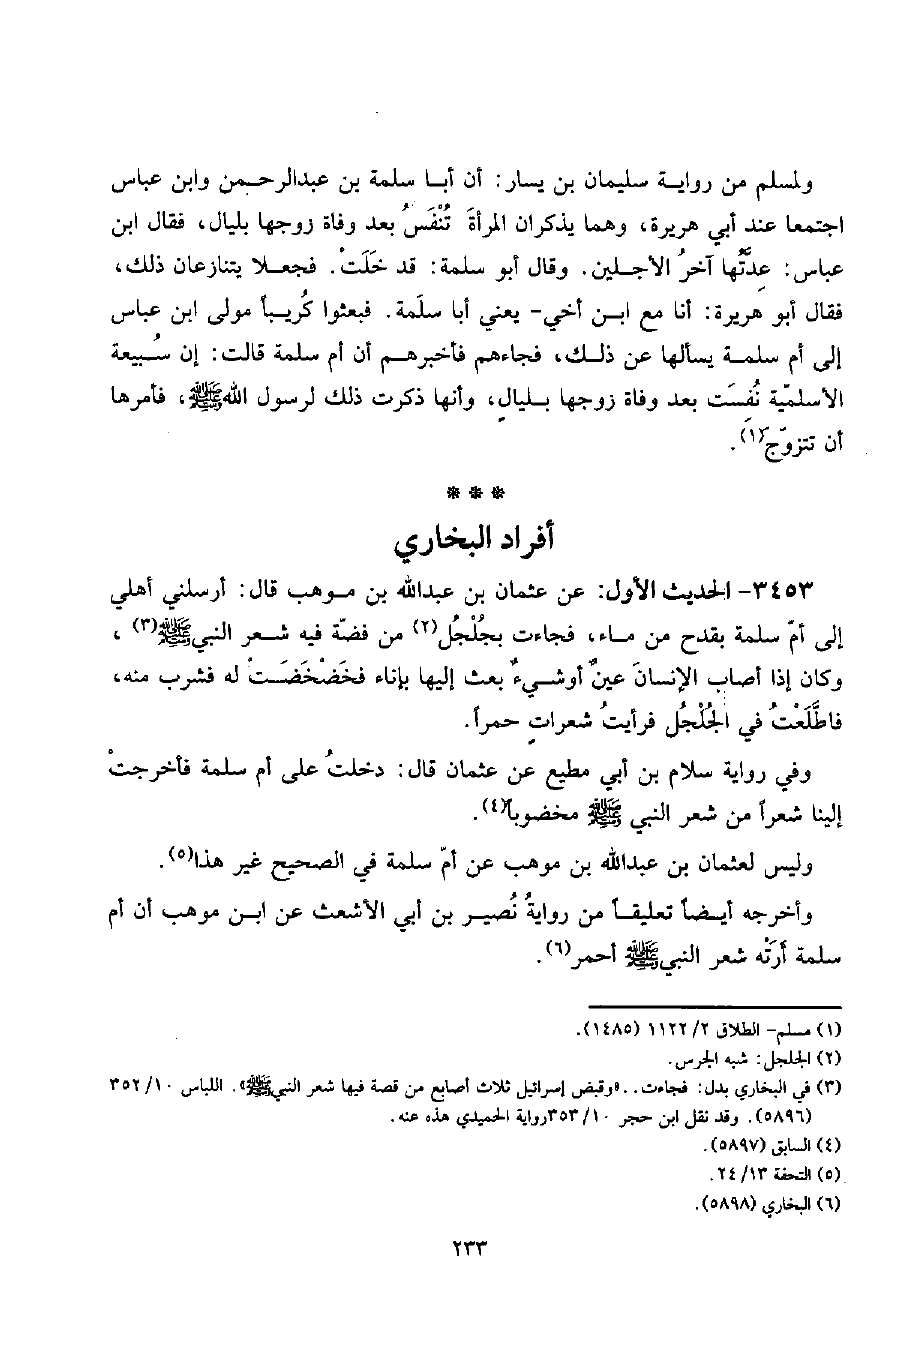 ولمسلم من روايـة سليمان بن يسار: أن أبـا سلمة بن عبدالرحـمن وابن عباس
اجتمعا عند أبي هريرة، وهما يذكران المرأةَ تُنْفَسُ بعد وفاة زوجها بليال، فقال ابن
عباس: عدّتُها آخرُ الأجـلين. وقال أبو سلمة: قد حَلَّتْ. فجعـلا يتنازعان ذلك،
فقال أبو هريرة: أنا مع ابـن أخي- يعني أبا سلَمة. فبعثوا كُريـباً مولى ابن عباس
إلى أم سلمـة يسألها عن ذلـك، فجاءهم فأخبرهـم أن أم سلمة قالت: إن سُـبيعة
الأسلميّة نُفِسَت بعد وفاة زوجها بـليالٍ، وأنها ذكرت ذلك لرسول اللهﷺ، فأمرها
أن تتزوّجَ(١).
* * *
أفراد البخاري
٣٤٥٣- الحديث الأول: عن عثمان بن عبدالله بن مـوهب قال: أرسلني أهلي
إلى أمّ سلمة بقدح من مـاء، فجاءت بجُلْجُل(٢) من فضّة فيه شـعر النبيﷺ(٣) ،
وكان إذا أصاب الإنسـانَ عينٌ أوشـيءٌ بعث إليها بإناء فخَضْخَضَـتْ له فشرب منه،
فاطَّلَعْتُ في الجُلْجُل فرأيتُ شعراتٍ حمراً.
وفي رواية سلام بن أبي مطيع عن عثمان قال: دخلتُ على أم سلمة فأخرجتْ
إلينا شعراً من شعر النبي ﷺ مخضوباً(٤).
وليس لعثمان بن عبدالله بن موهب عن أمّ سلمة في الصحيح غير هذا(٥).
وأخرجه أيـضاً تعليقـاً من روايةُ نُصيـر بن أبي الأشعث عن ابـن موهب أن أم
سلمة أَرَتْه شعر النبيﷺ أحمر(٦).
(١) مسلم- الطلاق ٢/ ١١٢٢ (١٤٨٥).
(٢) الجلجل: شبه الجرس.
(٣) في البخاري بدل: فجاءت.. «وقبض إسرائيل ثلاث أصابع من قصة فيها شعر النبيﷺ». اللباس ١٠/ ٣٥٢
(٥٨٩٦). وقد نقل ابن حجر ١٠/ ٣٥٣رواية الحميدي هذه عنه.
(٤) السابق (٥٨٩٧).
(٥) التحفة ١٣/ ٢٤.
(٦) البخاري (٥٨٩٨).
٢٣٣